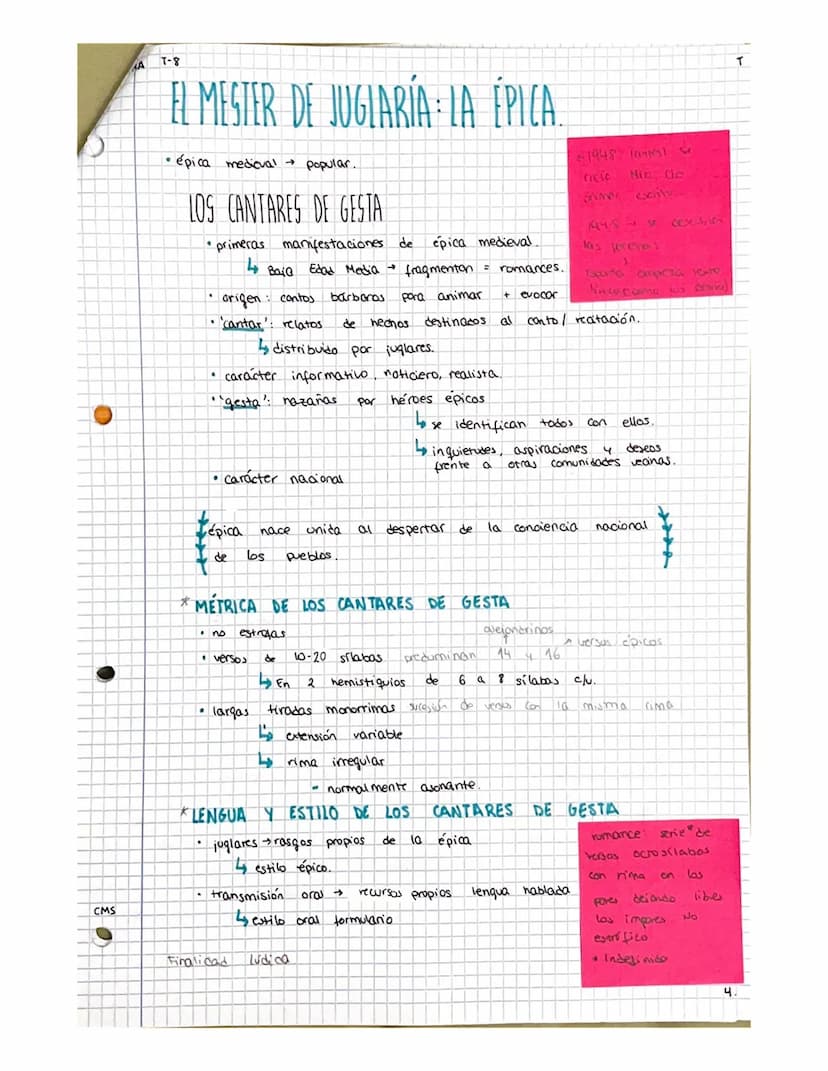 T-8
T
EL MESTER DE JUGLARÍA: LA ÉPICA.
• épica medieval → popular.
LOS CANTARES DE GESTA
• primeras manifestaciones de épica medieval.
↳ Baja Edad Media → fragmentan = romances.
• origen: cantos bárbaros para animar + evocar
• 'cantar': relatos de hechos destinados al canto / recitación.
↳ distribuido por juglares.
• carácter informativo, noticiero, realista.
• 'gesta': hazañas por héroes épicos
↳ se identifican todos con ellos.
↳ inquietudes, aspiraciones y deseos
frente a otras comunidades vecinas.
• carácter nacional
épica nace unida al despertar de la conciencia nacional
de los pueblos.
* MÉTRICA DE LOS CANTARES DE GESTA
• no estrofas
alejandrinos
• versos de 10-20 sílabas predominan 14 y 16 ↗ versus épicos
↳ En 2 hemistiquios de 6 a 8 sílabas c/u.
• largas tiradas monorrimas sucesión de versos con la misma rima
↳ extensión variable
↳ rima irregular
- normalmente asonante.
* LENGUA Y ESTILO DE LOS CANTARES DE GESTA
• juglares → rasgos propios de la épica
↳ estilo épico.
• transmisión oral → recursos propios lengua hablada
↳ estilo oral formulario
Finalidad lúdica
CMS
1948
primer
1948 → se
las
romance: serie de
versos octosílabos
con rima en las
pares dejando libes
las impares No
estrófico
* Indefinido
4.